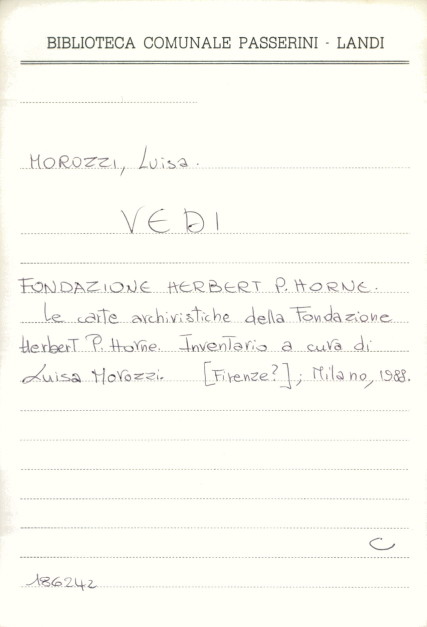 BIBLIOTECA COMUNALE PASSERINI - LANDI
MOROZZI, Luisa.
VEDI
FONDAZIONE HERBERT P. HORNE.
Le carte archivistiche della Fondazione
Herbert P. Horne. Inventario a cura di
Luisa Morozzi. [Firenze?]; Milano, 1988.
C
186242